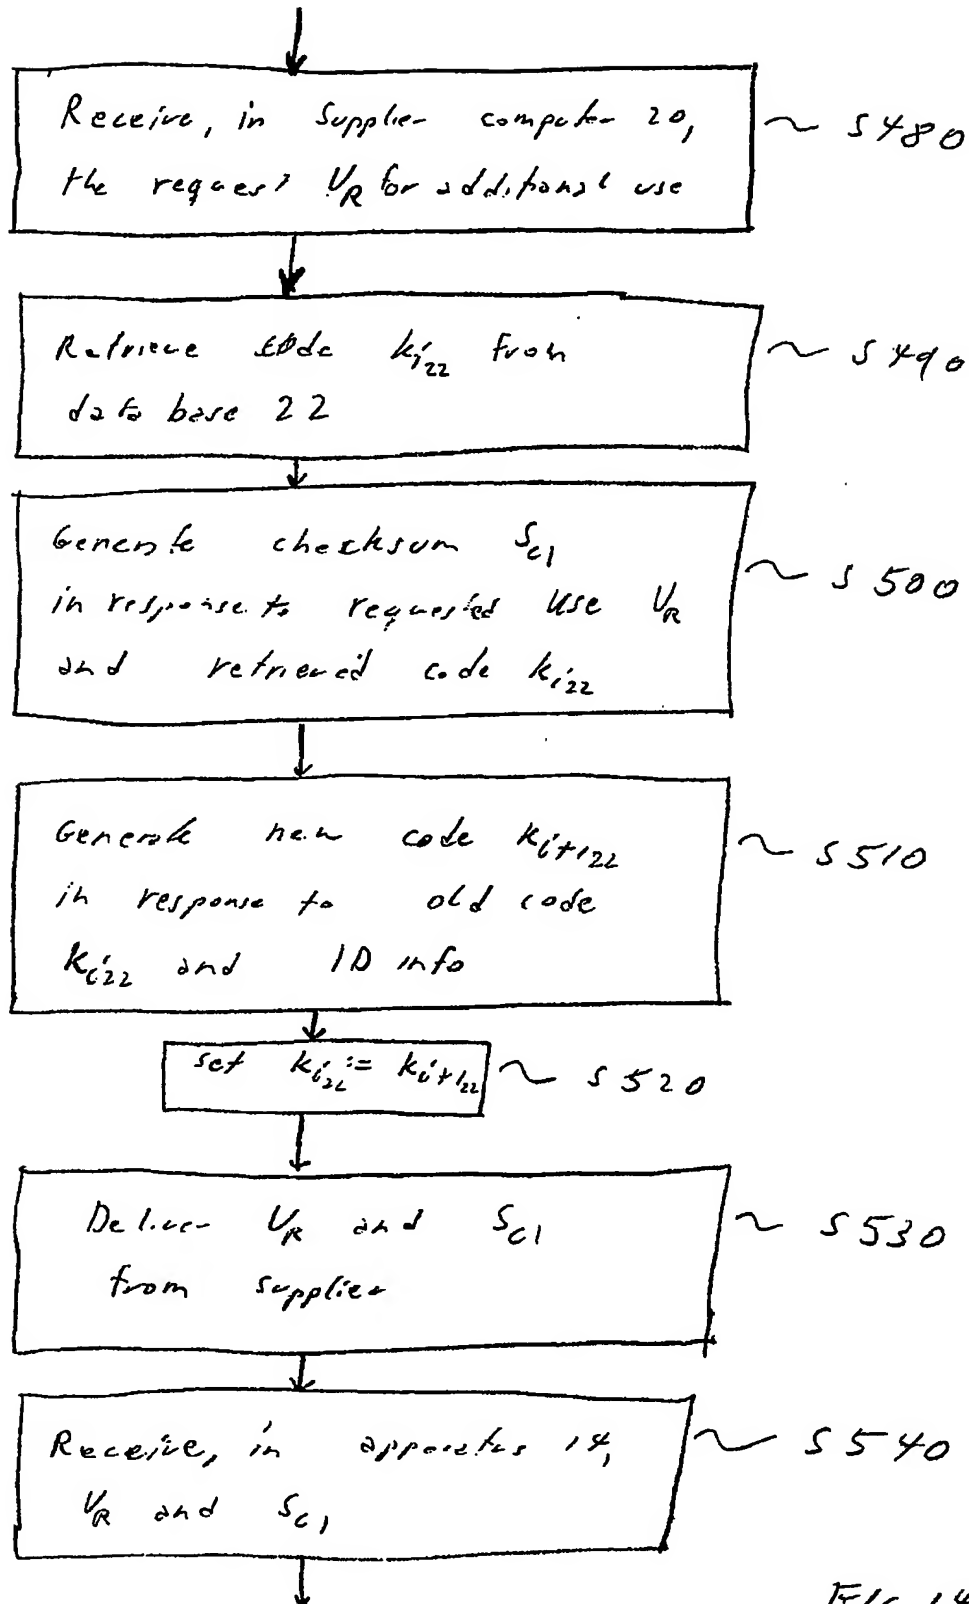 Receive, in Supplier computer 20, ~ S480
the request U_R for additional use
Retrieve code k_i22 from ~ S490
data base 22
Generate checksum S_c1
in response to requested use U_R ~ S500
and retrieved code k_i22
Generate new code k_i+1_22 ~ S510
in response to old code
k_i22 and ID info
set k_i22 := k_i+1_22 ~ S520
Deliver U_R and S_c1 ~ S530
from supplier
Receive, in apparatus 14, ~ S540
U_R and S_c1